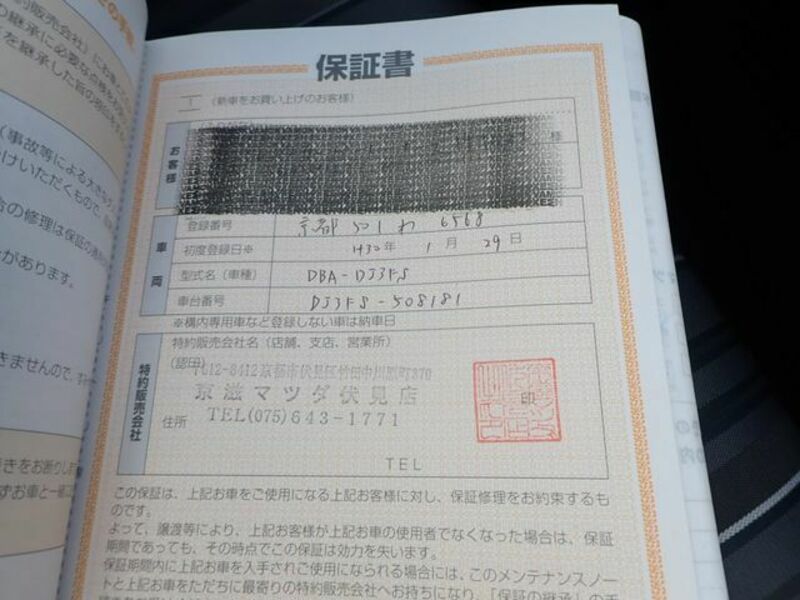 保証書
（新車をお買い上げのお客様）
お客様
様
車両
登録番号 京都 501 わ 6568
初度登録日※ H30年 1月 29日
型式名（車種） DBA-DJ3FS
車台番号 DJ3FS-508181
※構内専用車など登録しない車は納車日
特約販売会社
特約販売会社名（店舗、支店、営業所）
（認印）
〒612-8412 京都市伏見区竹田中川原町370
京滋マツダ伏見店
住所 TEL(075)643-1771
印
TEL
この保証は、上記お車をご使用になる上記お客様に対し、保証修理をお約束するも
のです。
よって、譲渡等により、上記お客様が上記お車の使用者でなくなった場合は、保証
期間であっても、その時点でこの保証は効力を失います。
保証期間内に上記お車を入手されご使用になられる場合には、このメンテナンスノー
トと上記お車をただちに最寄りの特約販売会社へお持ちになり、「保証の継承」の手
約販売会社）にお車と
の継承に必要な点検をお
を継承した旨の
（事故等による大きな
けいただくもので、
合の修理は保証の
があります。
きませんので、
きをお断りしま
ずお車と一緒に